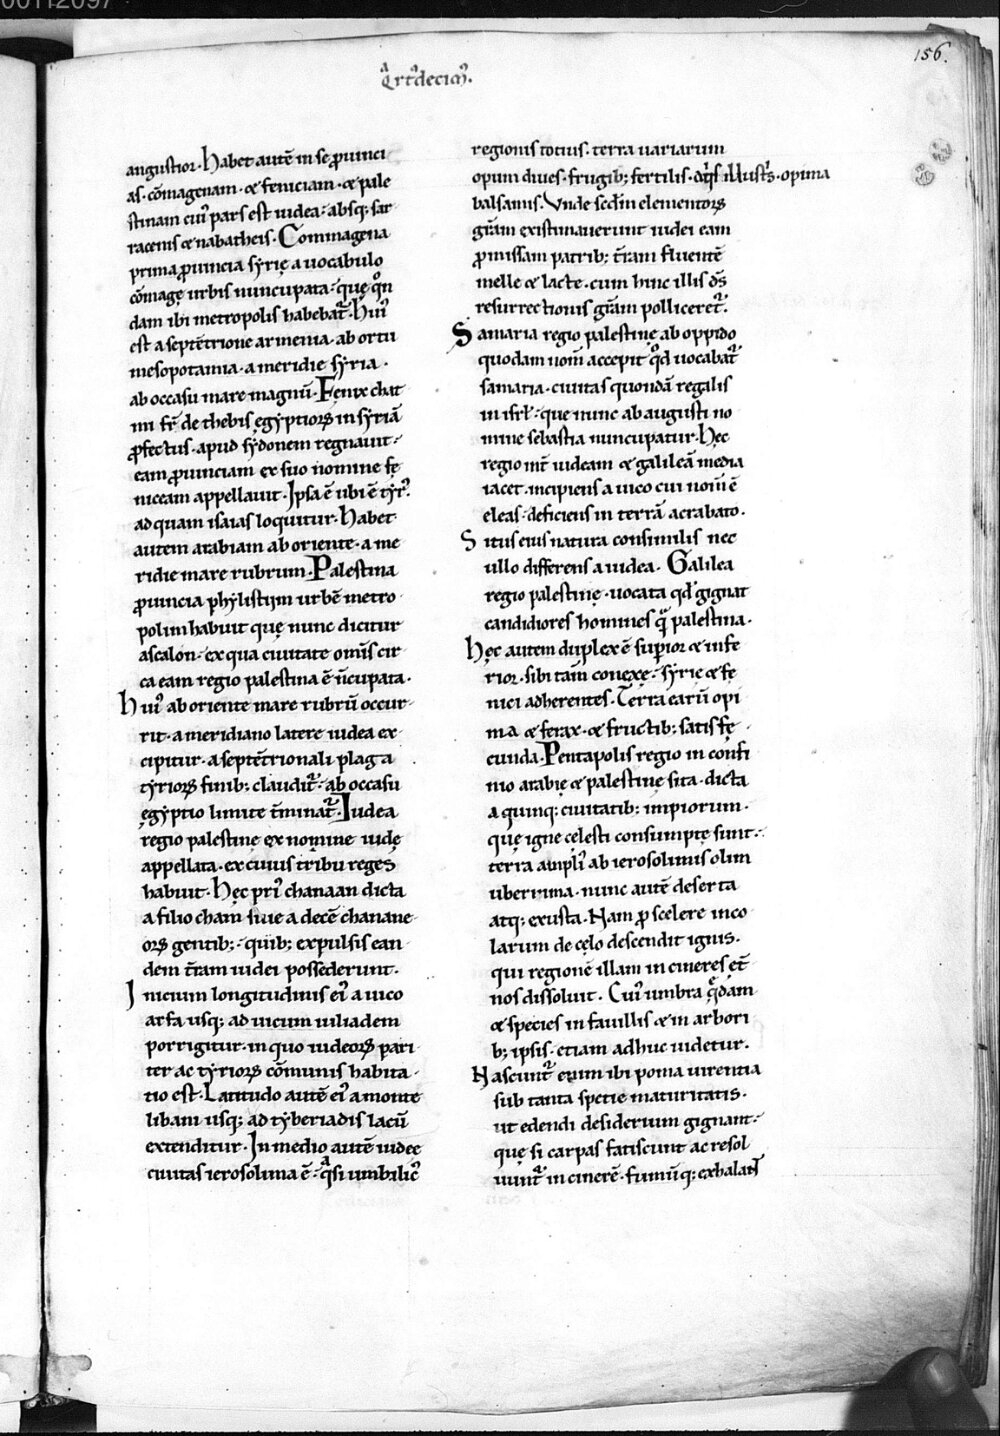 00112097
156.
Qͣrtꝰdecimꝰ.
angustior. Habet autē in se ꝓuinci
as. cōmagenam. & feniciam. & pale
stinam cuiꝰ pars est iudea: absq; sar
racenis & nabatheis. Commagena
prima ꝓuincia syrię a uocabulo
cōmagę urbis nuncupata: quę qͦn
dam ibi metropolis habebat᷑. Huiꝰ
est a septētrione armenia. ab ortu
mesopotamia. a meridie syria.
ab occasu mare magnū. Fenix chat
mi fr̄ de thebis ęgyptioꝝ in syriā
ꝓfectus. apud sydonem regnauit:
eam ꝓuinciam ex suo nomine fe
niceam appellauit. Ipsa ē ubi ē tyrꝰ.
ad quam isaias loquitur. Habet
autem arabiam ab oriente. a me
ridie mare rubrum. Palestina
ꝓuincia phylistijm urbē metro
polim habuit quę nunc dicitur
ascalon: ex qua ciuitate omīs cir
ca eam regio palestina ē n̄cupata.
Huiꝰ ab oriente mare rubrū occur
rit. a meridiano latere iudea ex
cipitur. a septētrionali plaga
tyrioꝝ finib; claudit᷑. ab occasu
ęgyptio limite t̄minat᷑. Iudea
regio palestinę ex nomine iudę
appellata. ex cuius tribu reges
habuit. Hęc priꝰ chanaan dicta
a filio cham siue a decē chanane
oꝝ gentib;: quib; expulsis ean
dem t̄ram iudei possederunt.
Inicium longitudinis eiꝰ a uico
arfa usq; ad uicum uiliadem
porrigitur. in quo iudeoꝝ pari
ter ac tyrioꝝ cōmunis habita
tio est. Latitudo autē eiꝰ a monte
libani usq; ad tyberiadis lacū
extenditur. In medio autē iudeę
ciuitas ierosolima ē: qͣsi umbilicꝰ
regionis totius. terra uariarum
opum diues. frugib; fertilis. aq̇s illustris. opima
balsamis. Vnde sedm̄ elementoꝝ
gr̄am existimauerunt iudei eam
ꝓmissam patrib; t̄ram fluentē
melle & lacte. cum hinc illis d̄s
resurrectionis gr̄am polliceret᷑.
Samaria regio palestinę ab oppido
quodam nom̄ accepit qd̄ uocabat᷑
samaria. ciuitas quondā regalis
in isrl̄: que nunc ab augusti no
mine sebastia nuncupatur. Hęc
regio int̄ iudeam & galileā media
iacet. incipiens a uico cui nom̄ ē
eleas. deficiens in terrā acrabato.
Situs eius natura consimilis nec
ullo differens a iudea. Galilea
regio palestinę. uocata qd̄ gignat
candidiores homines qͣ̄ palestina.
Hęc autem duplex ē suꝑior & infe
rior. sibi tam̄ conexę. syrię & fe
nici adherentes. Terra earū opi
ma & ferax. & fructib; satis fę
cunda. Pentapolis regio in confi
nio arabię & palestinę sita. dicta
a quinq; ciuitatib; impiorum.
quę igne cęlesti consumptę sunt:
terra ampliꝰ ab ierosolimis olim
uberrima. nunc autē deserta
atq; exusta. Nam ꝓ scelere inco
larum de cęlo descendit ignis.
qui regionē illam in cineres et̄
nos dissoluit. Cuiꝰ umbra q̄dam
& species in fauillis & in arbori
b; ipsis. etiam adhuc uidetur.
Nascunt᷑ enim ibi poma uirentia
sub tanta specie maturitatis.
ut edendi desiderium gignant:
quę si carpas fatiscunt ac resol
uunt᷑ in cinerē. fumūq; exhalant